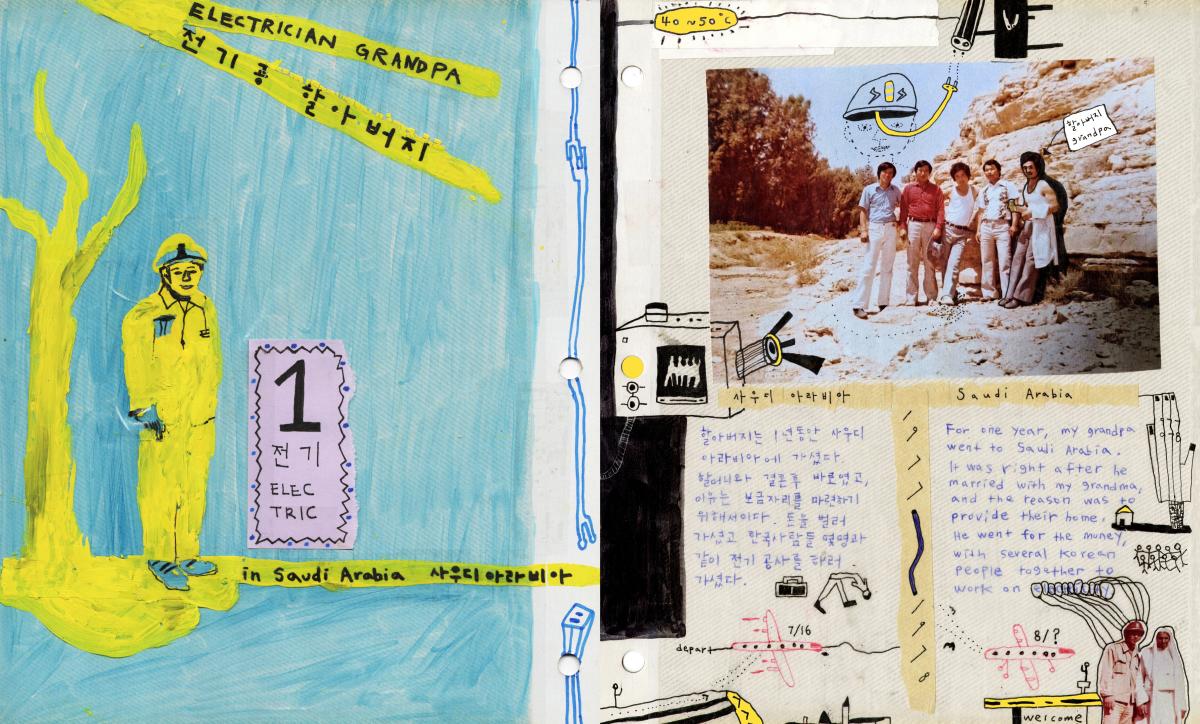 ELECTRICIAN GRANDPA
전기공 할아버지
1
전기
ELEC
TRIC
in Saudi Arabia 사우디아라비아
40~50°C
할아버지
grandpa
사우디 아라비아
Saudi Arabia
할아버지는 1년동안 사우디
아라비아에 가셨다.
할머니와 결혼후 바로였고,
이유는 보금자리를 마련하기
위해서이다. 돈을 벌러
가셨고 한국사람들 몇명과
같이 전기 공사를 하러
가셨다.
For one year, my grandpa
went to Saudi Arabia.
It was right after he
married with my grandma,
and the reason was to
provide their home.
He went for the money,
with several korean
people together to
work on
depart
7/16
8/?
welcome